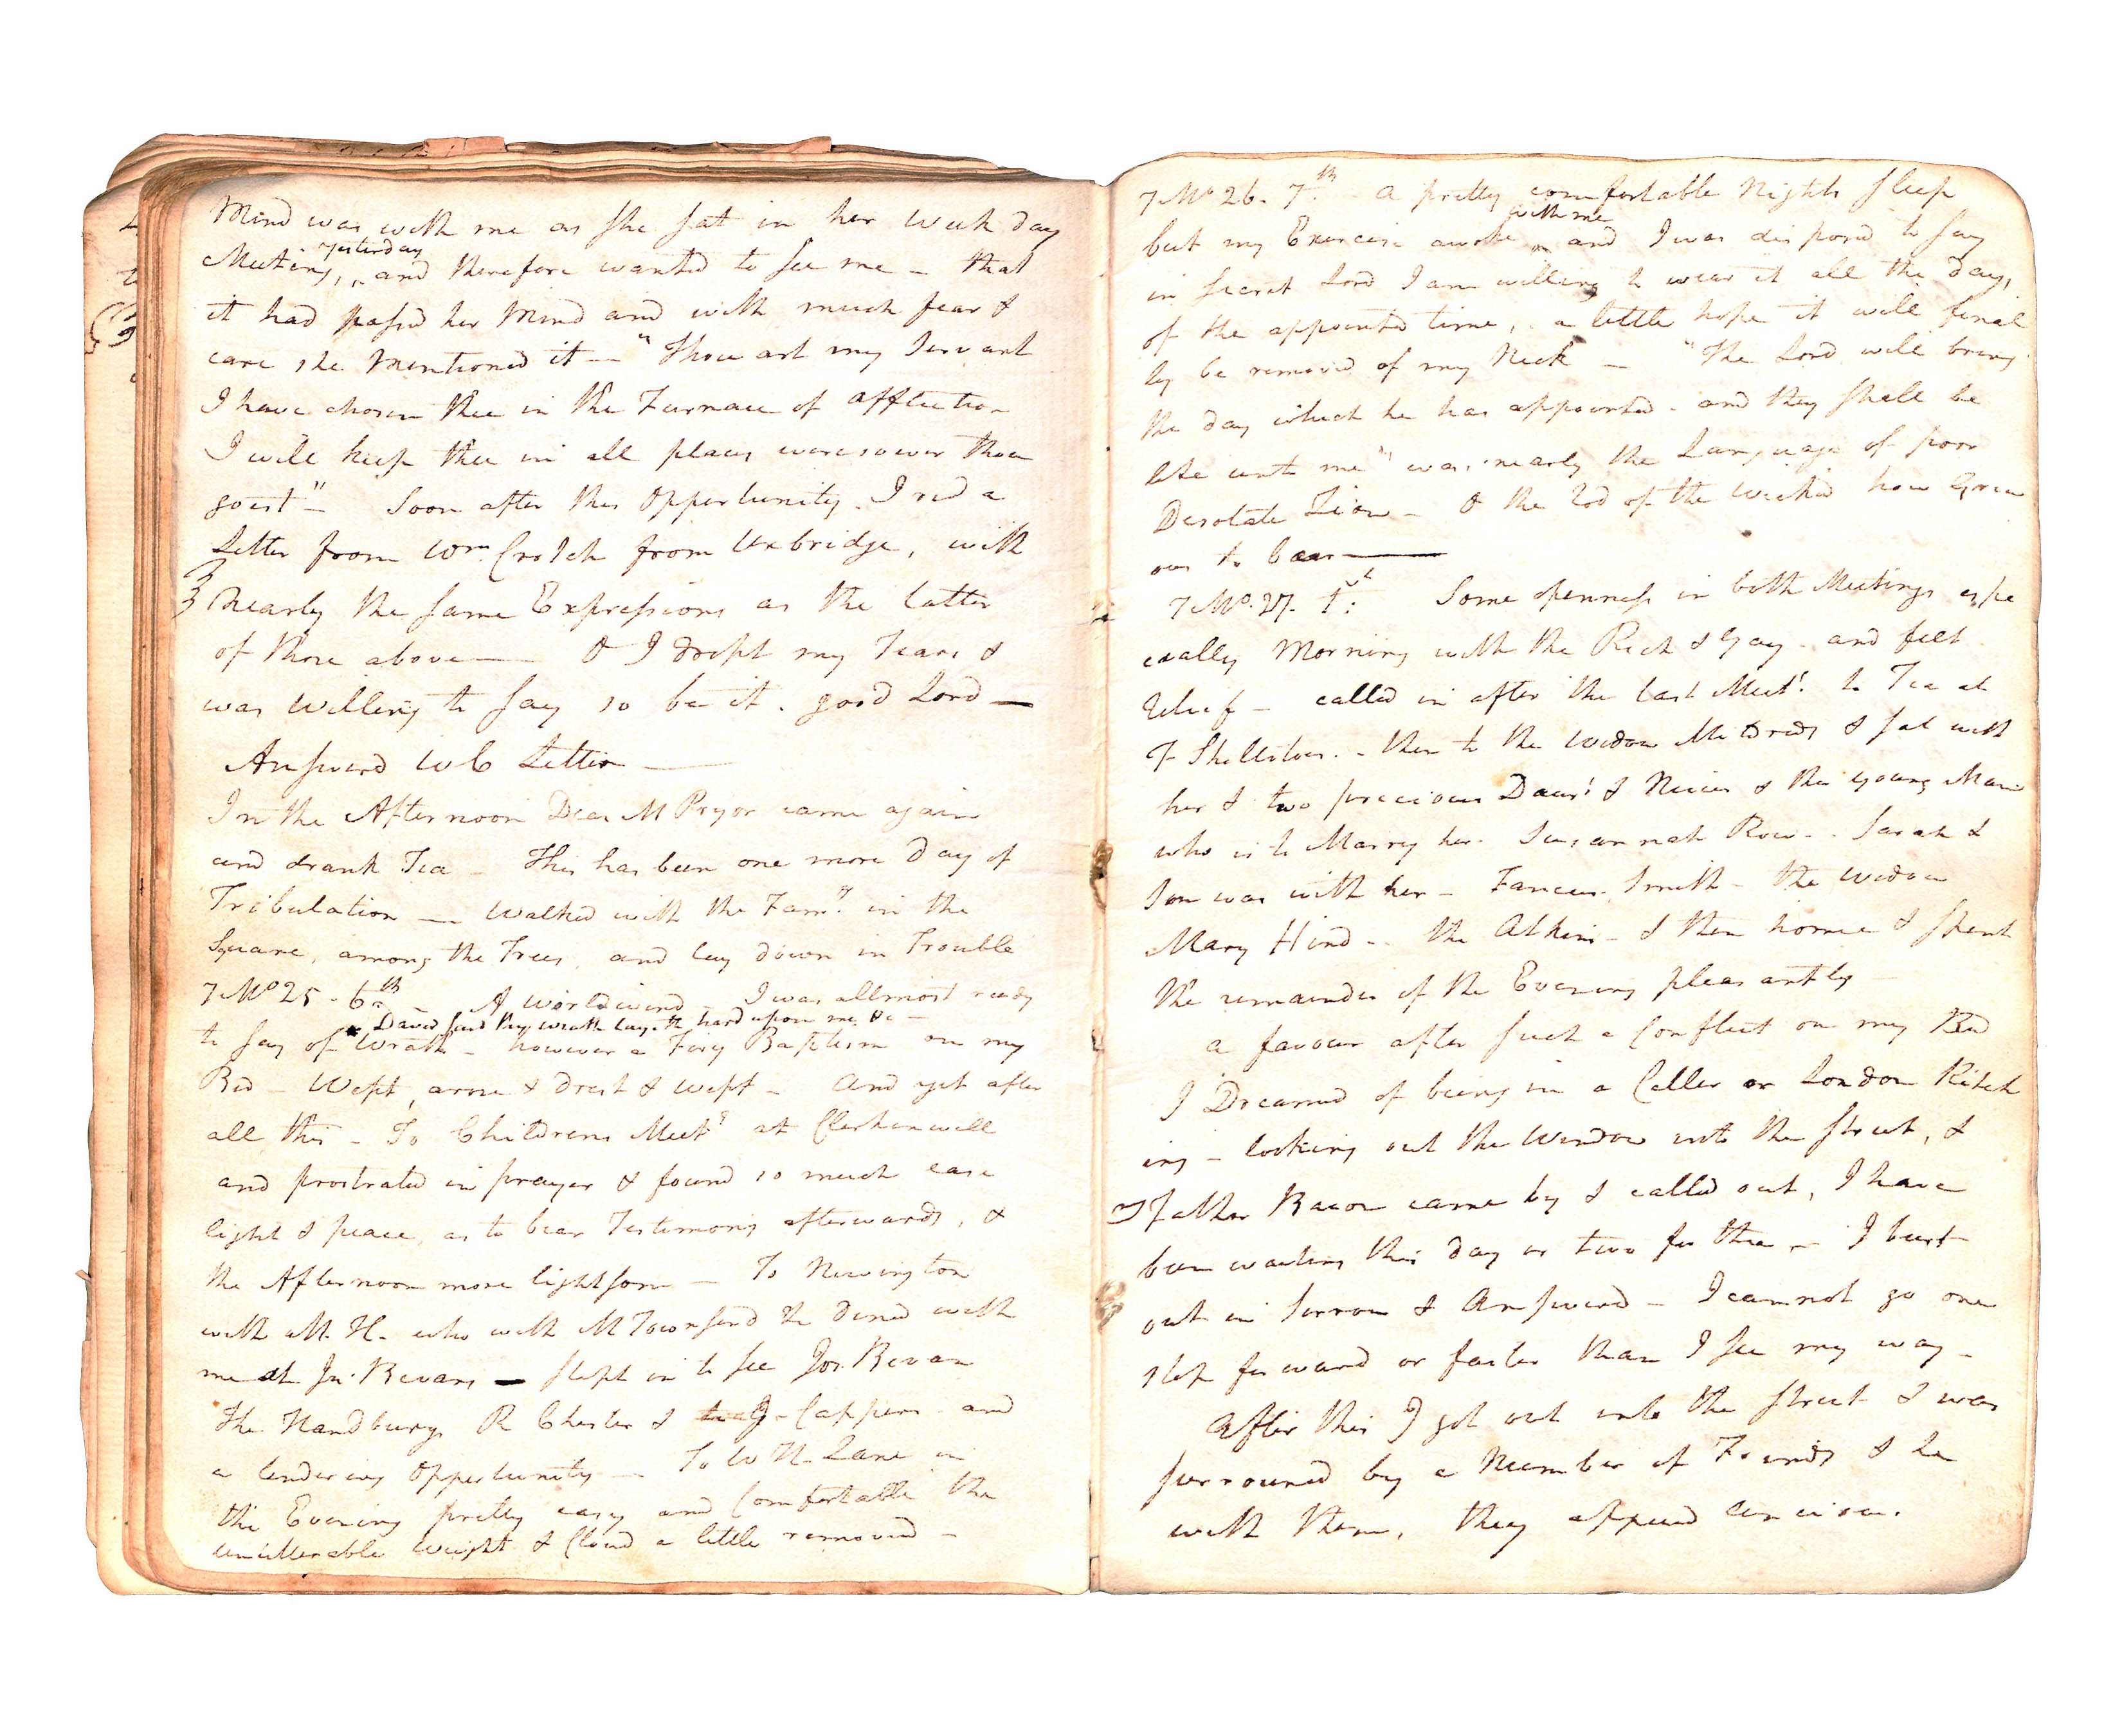 Mind was with me as she sat in her week day
Meeting, yesterday and therefore wanted to see me - that
it had passd her Mind and with much fear &
care she mentioned it — "Thou art my Servant
I have chosen thee in the Furnace of affliction
I will keep thee in all places weresoever thou
goest" - Soon after this Opportunity I red a
Letter from Wm. Crotch from Uxbridge, with
nearly the same Expressions as the latter
of those above — O I dropt my Tears &
was willing to say so be it. good Lord —
Answerd W C Letter —
In the Afternoon Dear M Pryor came again
and drank Tea - This has been one more day of
Tribulation — Walked with the Famy. in the
Square, among the Trees, and lay down in Trouble
7 Mo 25 - 6th - A - I was allmost ready
David said thy wrath layeth hard upon me &c -
to say of Wrath - however a Firey Baptism on my
Bed - Wept, arose & drest & wept - And yet after
all this - To Childrens Meetg at Clerkenwell
and prostrated in prayer & found so much ease
light & peace, as to bear Testimony afterwards, &
the Afternoon more lightsom - To Newington
with M. H. who with M Townsend &c dined with
me at Jn. Bevans - stept in to see Jos. Bevan
The Handburys R Chester & J - Cappers and
a tendering Opportunity - To W H Lane in
the Evening pretty easy and Comfortable the
unutterable weight & Cloud a little removed -
7 Mo 26. 7th - a pretty comfortable Nights sleep
but my Exercise awoke with me and I was disposd to say
in secret Lord I am willing to wear it all the day,
of the appointed time, a little hope it will final
ly be removed of my Neck - "The Lord will bring
the day which he has appointed - and they shall be
like unto me" was nearly the Language of poor
Desolate Zion - O the rod of the wicked how Griev
ous to bear —
7 Mo. 27. 1st Some openness in both Meetings espe
cially Morning with the Rich & Gay - and felt
relief - called in after the last Meetg. to Tea at
- then to the Widow & sat with
her & two precious Daurs & Nieces & the young Man
who is to Marry her. Susannah Row - Sarah &
Son was with her - Smith - the Widow
Mary Hind - the Atkins - & then home & spent
the remainder of the Evening pleasantly -
a favour after such a Conflict on my Bed
I Dreamed of being in a Celler or London Kitch
ing - looking out the Window into the street, &
Father Bacon came by & called out, I have
been waiting this day or two for thee - I burst
out in sorrow & Answerd - I cannot go one
step forward or faster than I see my way -
After this I got out into the street & was
surround by a Number of Friends & he
with them, they